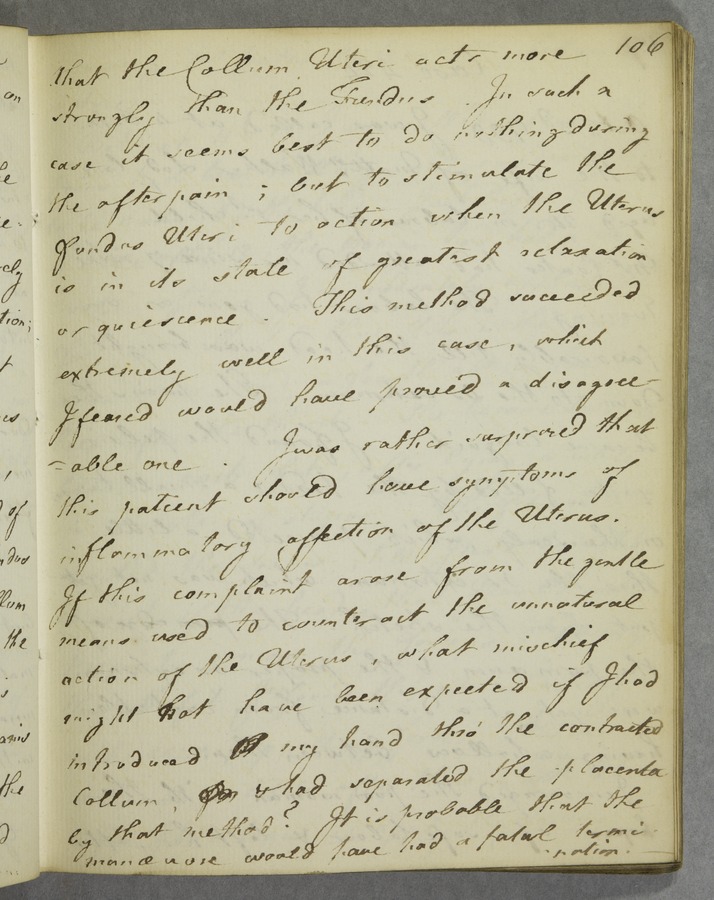 106
that the Collum Uteri acts more
strongly than the Fundus. In such a
case it seems best to do nothing during
the after pain; but to stimulate the
Fundus Uteri to action when the Uterus
is in its state of greatest relaxation
or quiescence. This method succeeded
extremely well in this case, which
I feared would have proved a disagree-
=able one. I was rather surprised that
this patient should have symptoms of
inflammatory affection of the Uterus.
If this complaint arose from the gentle
means used to counteract the unnatural
action of the Uterus, what mischief
might not have been expected if I had
introduced my hand thro' the contracted
Collum, & had separated the placenta
by that method? It is probable that the
manœuvre would have had a fatal termi-
-nation.
on
tion;
d of
ndus
llum
the
the